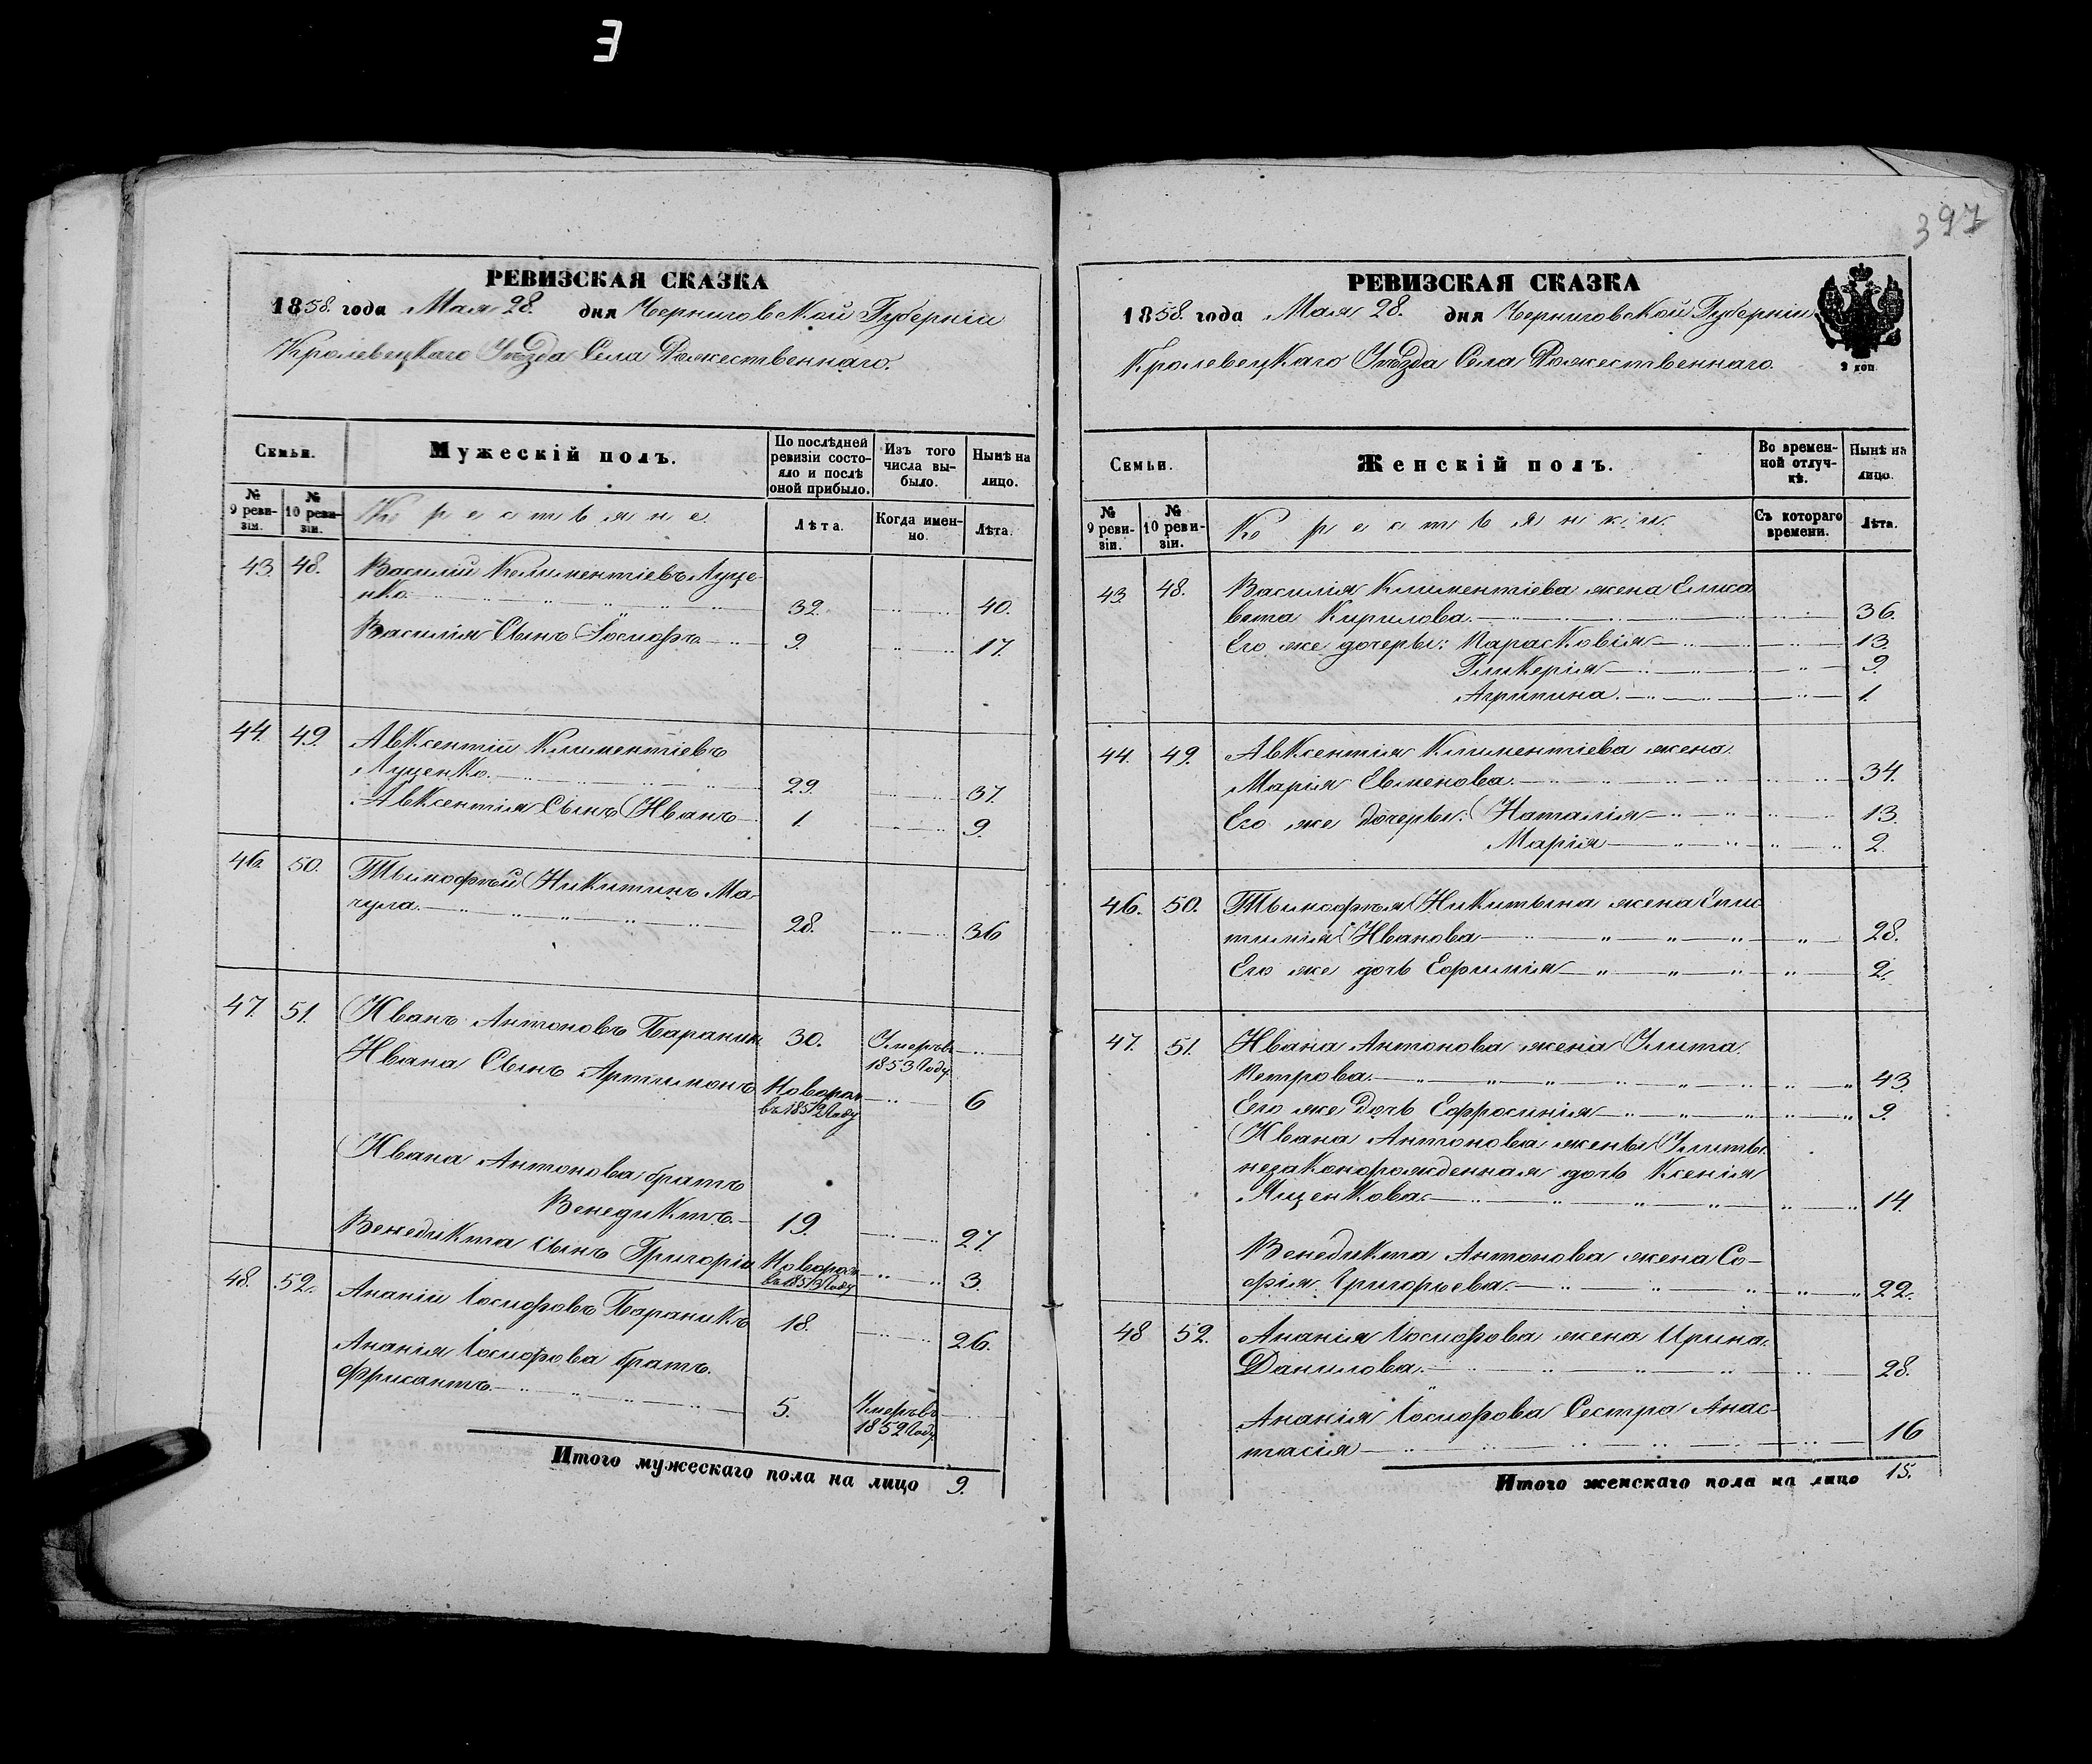 397
РЕВИЗСКАЯ СКАЗКА
1858. года Мая 28. дня Черниговской Губерніи
Кролевецкаго Уѣзда Села Рожественнаго.
Семьи.
Мужескій полъ.
По послѣдней ревизіи состояло и послѣ оной прибыло.
Изъ того числа выбыло.
Нынѣ на лицо.
№ 9 ревизіи.
№ 10 ревизіи.
Крестьяне.
Лѣта.
Когда именно.
Лѣта.
43. 48. Василій Климентіевъ Луце-
нко. 32. 40.
Василія Сынъ Іосифъ 9. 17.
44. 49. Авксентій Климентіевъ
Луценко. 29. 37.
Авксентія Сынъ Иванъ 1. 9.
46. 50. Тымофѣй Никитинъ Ма-
чула. 28. 36
47. 51. Иванъ Антоновъ Бараникъ 30. Умеръ въ
1853 Году
Ивана Сынъ Артимонъ Новорож
въ 1852 Году 6
Ивана Антонова братъ
Венедиктъ. 19. 27.
Венедикта Сынъ Григорій Новорож
въ 1853 Году 3.
48. 52. Ананій Іосифовъ Бараникъ 18. 26.
Ананія Іосифова братъ
5. Умеръ въ
1852 Году
Итого мужескаго пола на лицо 9.
РЕВИЗСКАЯ СКАЗКА
1858. года Мая 28. дня Черниговской Губерніи
Кролевецкаго Уѣзда Села Рожественнаго.
Семьи.
Женскій полъ.
Во временной отлучкѣ.
Нынѣ на лицо.
№ 9 ревизіи.
№ 10 ревизіи.
Крестьянкіи.
Съ котораго времени.
Лѣта.
43. 48. Василія Климентіева жена Елиса
вета Кирилова. 36.
Его же дочеры: Парасковія 13.
Гликерія 9.
Агрипина. 1.
44. 49. Авксентія Климентіева жена
Марія Евменова. 34.
Его же дочеры: Наталія 13.
Марія 2.
46. 50. Тымофѣя Никитына жена Епис
тимія Иванова 28.
Его же дочь Ефимія 2.
47. 51. Ивана Антонова жена Улита
Петрова. 43
Его же дочь Ефросинія 9.
Ивана Антонова жены Улиты
незаконорожденная дочь Ксенія
Яценкова. 14.
Венедикта Антонова жена Со-
фія Григорьева. 22.
48 52. Ананія Іосифова жена Ирина
Данилова. 28.
Ананія Іосифова Сестра Анас-
тасія 16
Итого женскаго пола на лицо 15.